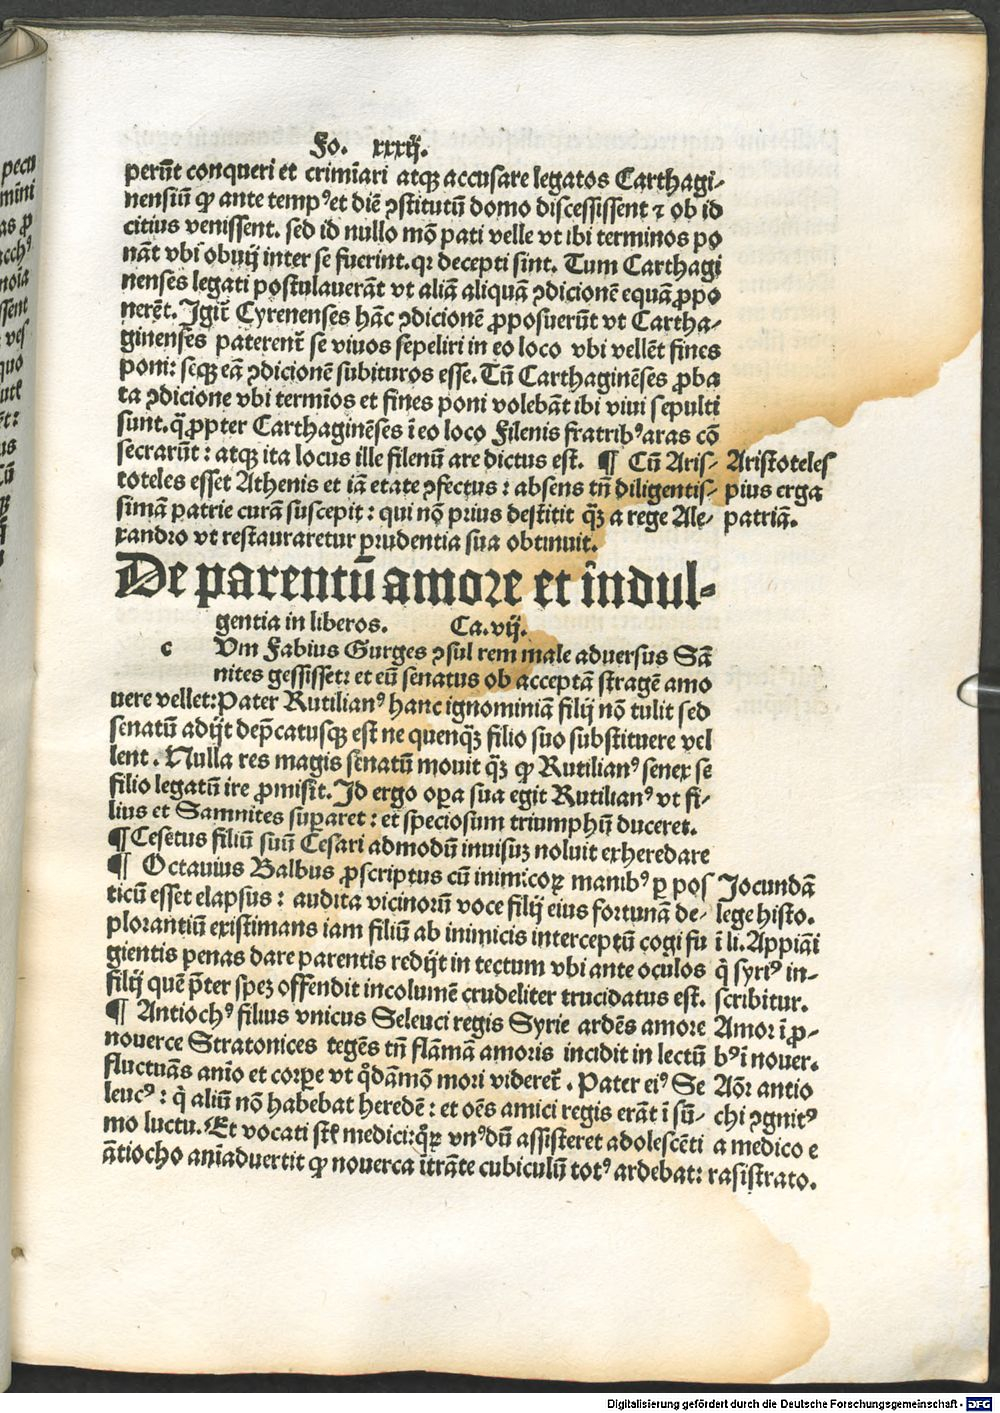 Fo. xxxij.
perūt conqueri et crimīari atqȝ accusare legatos Carthagi⸗
nensiū ꝙ ante tempꝰ et diē ꝯstitutū domo discessissent ⁊ ob id
citius venissent. sed id nullo mō pati velle vt ibi terminos po
nāt vbi obuij inter se fuerint. qꝛ decepti sint. Tum Carthagi
nenses legati postulauerāt vt aliā aliquā ꝯdicionē equā ꝓpo
nerēt. Igit᷑ Cyrenenses hāc ꝯdicionē ꝓposuerūt vt Cartha⸗
ginenses paterent᷑ se viuos sepeliri in eo loco vbi vellēt fines
poni: seqȝ eā ꝯdicionē subituros esse. Tū Carthaginēses ꝓba
ta ꝯdicione vbi termīos et fines poni volebāt ibi viui sepulti
sunt. q̄ ꝓpter Carthaginēses ī eo loco Filenis fratribꝰ aras cō
secrarūt: atqȝ ita locus ille filenū are dictus est. ¶ Cū Aris⸗
toteles esset Athenis et iā etate ꝯfectus: absens tn̄ diligentis⸗
simā patrie curā suscepit: qui nō prius destitit qȝ̄ a rege Ale⸗
xandro vt restauraretur prudentia sua obtinuit.
Aristoteles
pius erga
patriā.
De parentū amore et indul⸗
gentia in liberos. Ca. vij.
c Vm Fabius Gurges ꝯsul rem male aduersus Sā
nites gessisset: et eū senatus ob acceptā stragē amo
uere vellet: Pater Rutilianꝰ hanc ignominiā filij nō tulit sed
senatū adijt dep̄catusqȝ est ne quenqȝ̄ filio suo substituere vel
lent. Nulla res magis senatū mouit qȝ̄ ꝙ Rutilianꝰ senex se
filio legatū ire ꝓmisit. Id ergo oꝑa sua egit Rutilianꝰ vt fi⸗
lius et Samnites suꝑaret: et speciosum triumphū duceret.
¶ Cesetus filiū suū Cesari admodū inuisuȝ noluit exheredare
¶ Octauius Balbus ꝓscriptus cū inimicoꝝ manibꝰ ꝑ pos
ticū esset elapsus: audita vicinorū voce filij eius fortunā de⸗
plorantiū existimans iam filiū ab inimicis interceptū cogi fu
gientis penas dare parentis redijt in tectum vbi ante oculos
filij quē p̄ter speȝ offendit incolumē crudeliter trucidatus est.
Jocundā
lege histo.
ī li. Appiāi
q̄ syriꝰ in⸗
scribitur.
¶ Antiochꝰ filius vnicus Seleuci regis Syrie ardēs amore
nouerce Stratonices tegēs tn̄ flāmā amoris incidit in lectū
fluctuās anīo et corꝑe vt q̄dāmō mori videret᷑. Pater eiꝰ Se
leucꝰ: q̄ aliū nō habebat heredē: et oēs amici regis erāt ī sū⸗
mo luctu. Et vocati st̄ medici: q̄ꝝ vnꝰ dū assisteret adolescēti
ātiocho anīaduertit ꝙ nouerca ītrāte cubiculū totꝰ ardebat:
Amor ī ꝓ⸗
bꝰ ī nouer.
Aōꝛ antio
chi ꝯgnitꝰ
a medico e
rasistrato.
Digitalisierung gefördert durch die Deutsche Forschungsgemeinschaft - DFG